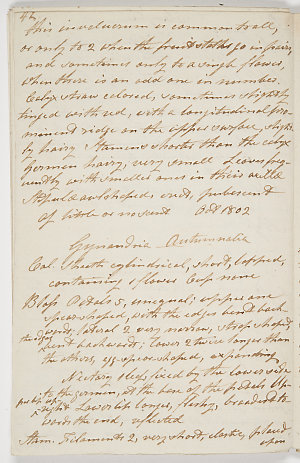 42
this involucrum is common to all,
or only to 2 when the fruit stalks go in pairs,
and sometimes only to a single flower,
when there is an odd one in number.
Calyx straw colored, sometimes slightly
tinged with red, with a longitudinal pro-
minent ridge on the upper surface, slight-
ly hairy Stamens shorter than the calyx
Germen hairy, very small Leaves fre-
quently with smaller ones in their axillæ
Stipula awlshaped, end, pubescent
of little or no scent Oct 1802
Gynandria Autumnalis
Cal. Sheath cylindrical, short, lopped,
containing 1 flower Cup none
Blos. Petals 5, unequal; upper one
spear shaped, with the edges bent back
wards; lateral 2 very narrow, strap shaped,
the edges bent backwards; lower 2 twice longer than
the others, egg-spear shaped, expanding
Nectary 1 leaf, fixed by the lower side
to the germen, at the base of the petals Up-
per lip upright Lower lip longer, fleshy, broadend to-
wards the end, reflected
Stam. Filaments 2, very short, elastic, placed
upon